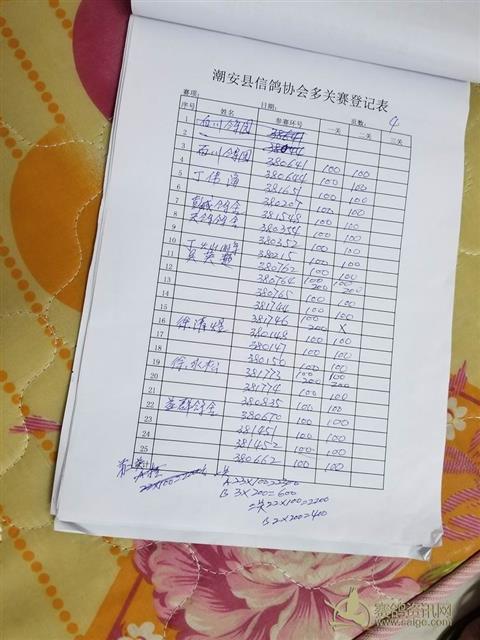 潮安县信鸽协会多关赛登记表
赛项: 日期: 页数: 4
序号 姓名 参赛环号 一关 二关 三关
1 石川合鸽园 38641
2 38044
3 石川合鸽园 380641 100 100
4 380644 100 100
5 丁伟海 381651 100 100
6 380207 100 100
7 鸽舍 381548 100 100
8 鸽舍 380354 100 100
9 380352 100 100
10 380215 100 100
11 吴英题 380762 100 100
12 380764 100 200 100 200
13 380765 100 100
14 381744 100 100
15 381746 100 200 X
16 徐清煌 380148 100 100
17 380147 100 100
18 380150 100 100
19 徐水松 381773 100 200 100 200
20 381774 100 100
21 380835 100 100
22 益群鸽舍 380670 100 100
23 381451 100 100
24 381452 100 100
25 380662 100 100
A 23×100=2300
22×100=2200
B 3×200=600
二关22×100=2200
B 2×200=400
赛鸽资讯网
www.saige.com